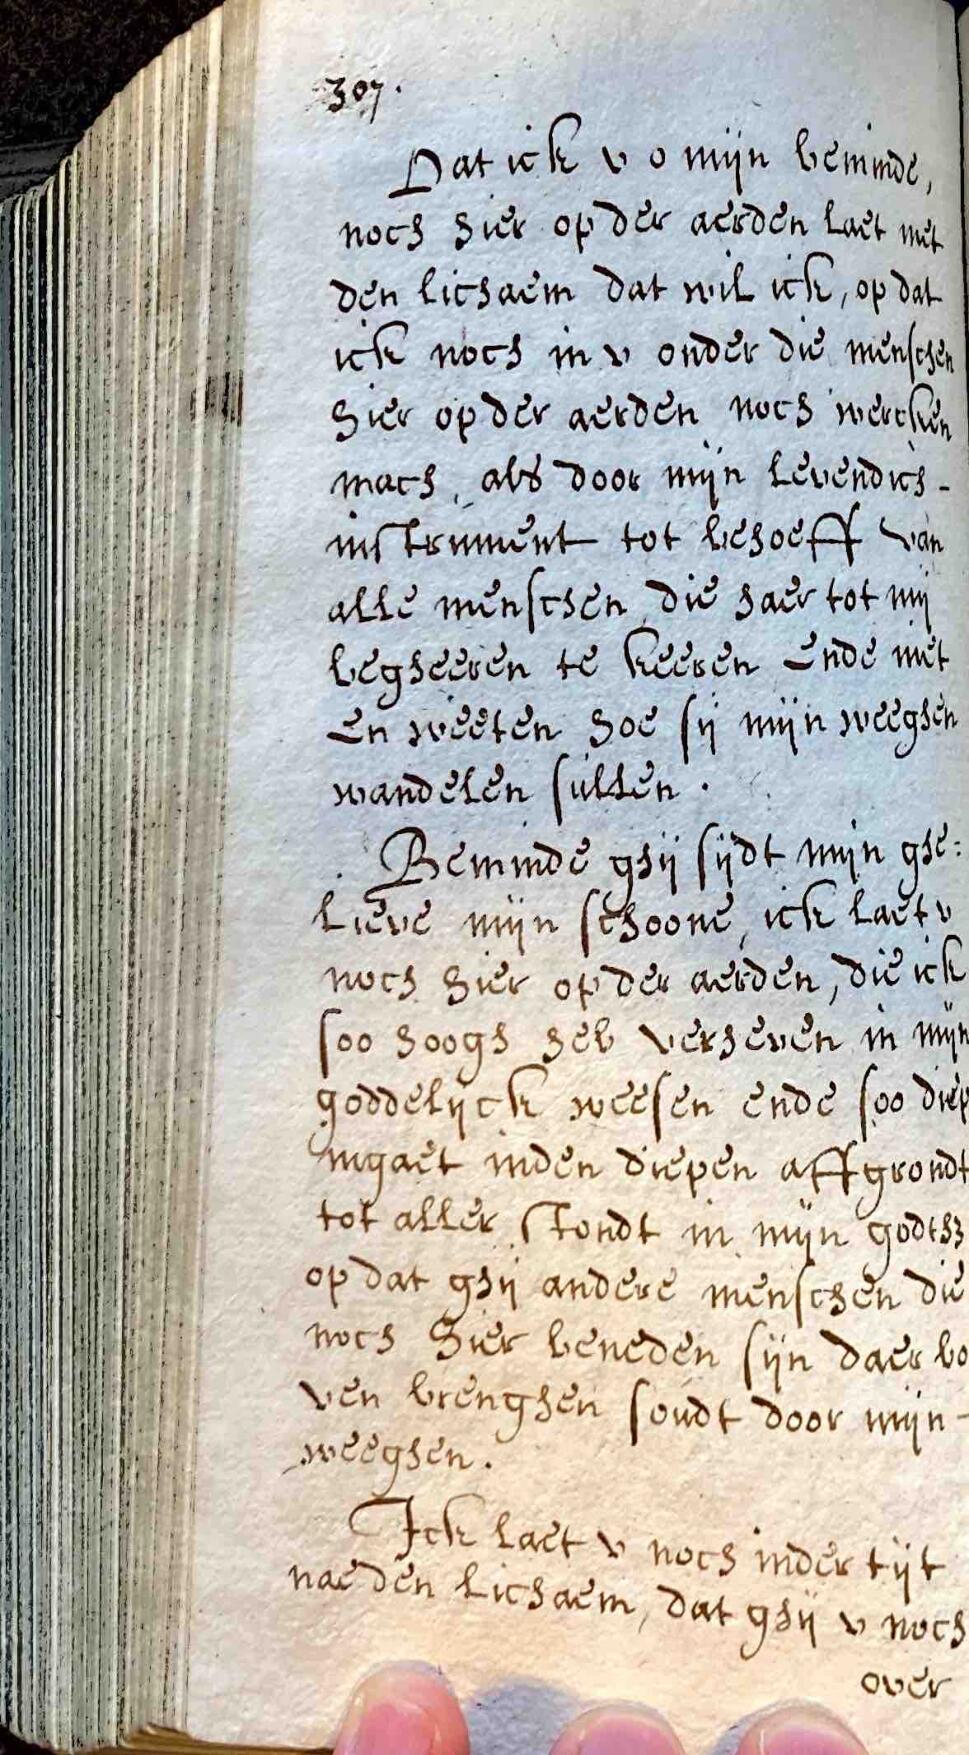 307.
Dat ick v o mijn beminde,
noch hier op der aerden laet met
den lichaem dat wil ick, op dat
ick noch in v onder die menschen
hier op der aerden noch wercken
mach, als door mijn levendich-
instrument tot behoeff van
alle menschen die haer tot mij
begheeren te keeren ende niet
en weeten hoe sij mijn weeghen
wandelen sullen.
Beminde ghij sijdt mijn ghe:
lieve mijn schoone, ick laet v
noch hier op der aerden, die ick
soo hoogh heb verheven in mijn
goddelijck weesen ende soo diep
ingaet inden diepen affgrondt
tot aller stondt in mijn
op dat ghij andere menschen die
noch hier beneden sijn daer bo
ven brenghen soudt door mijn-
weeghen.
Ick laet v noch inder tijt
nae den lichaem, dat ghij v noch
over